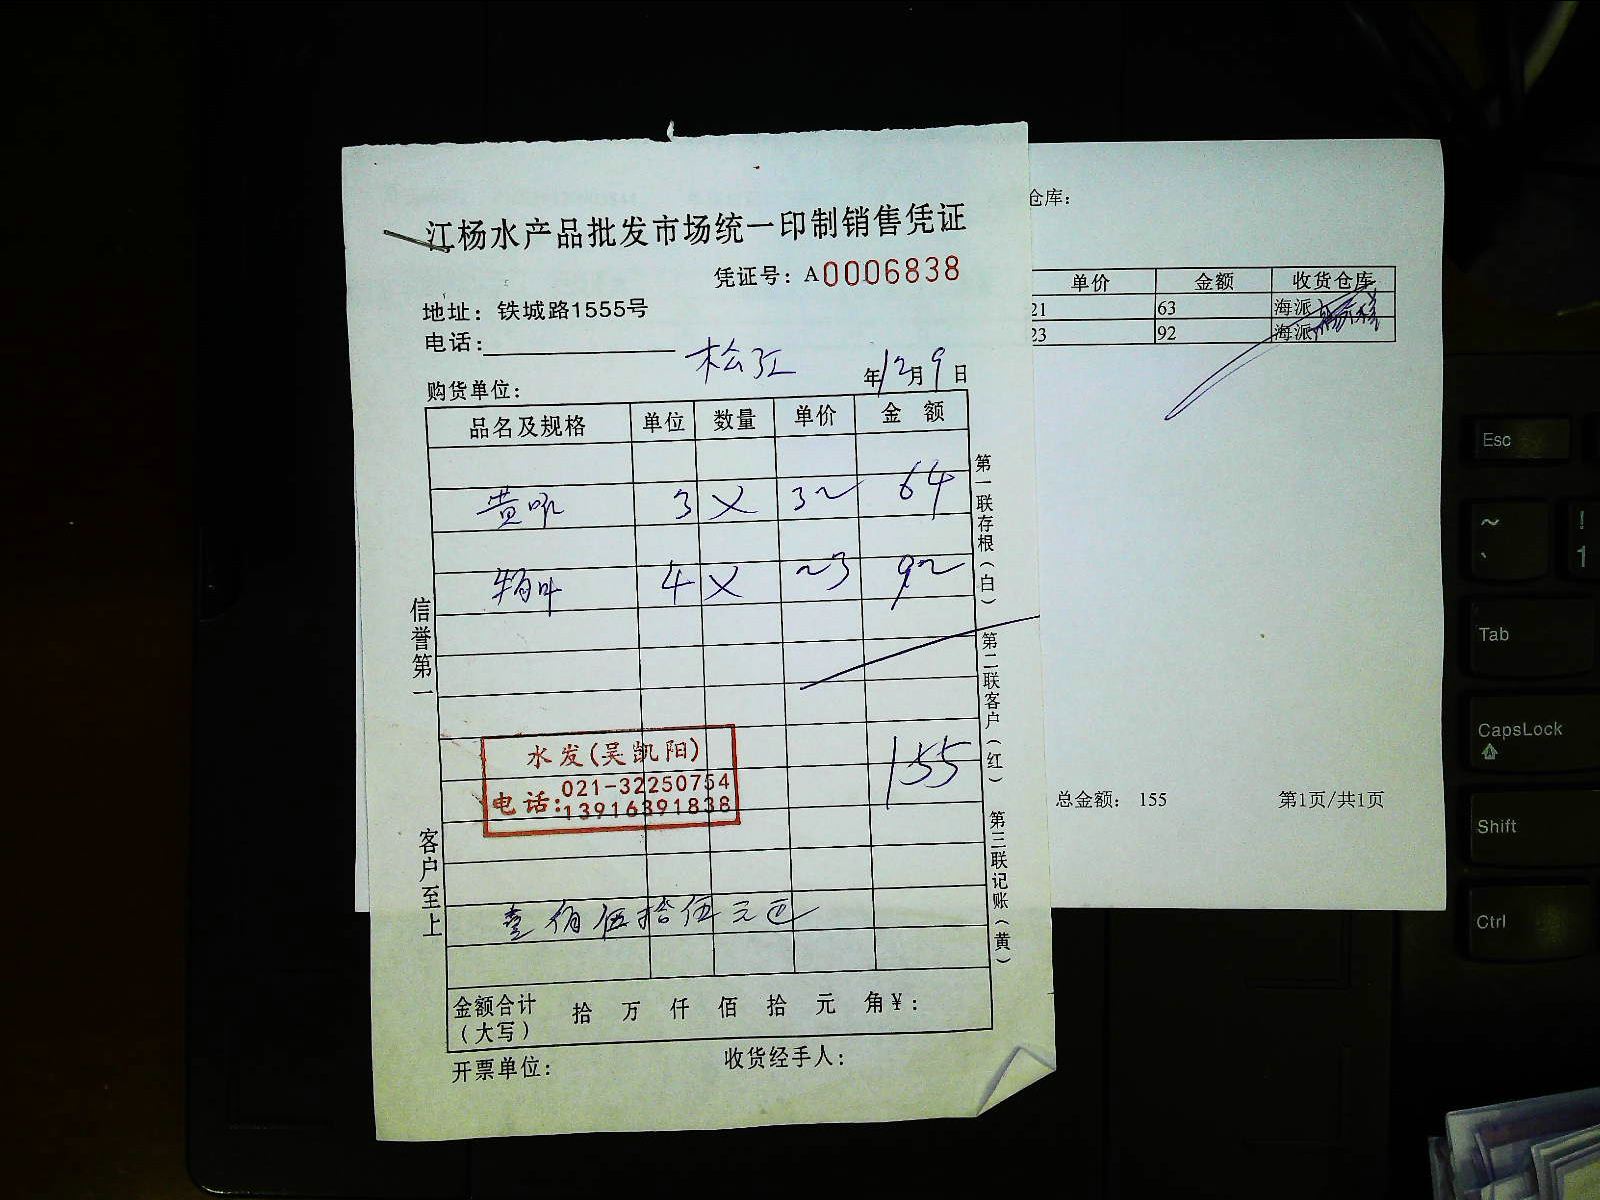 江杨水产品批发市场统一印制销售凭证
凭证号：A0006838
地址：铁城路1555号
电话：
松江
年12月9日
购货单位：
品名及规格 单位 数量 单价 金 额
3 × 64
4 × 23 92
155
壹佰伍拾伍元
水发(吴凯阳)
电话：021-32250754
13916391838
金额合计（大写） 拾 万 仟 佰 拾 元 角 ¥：
开票单位： 收货经手人：
信誉第一
客户至上
第一联存根(白)
第二联客户(红)
第三联记账(黄)
仓库：
单价 金额 收货仓库
21 63 海派
23 92 海派
总金额： 155 第1页/共1页
Esc
~
`
!
1
Tab
CapsLock
Shift
Ctrl